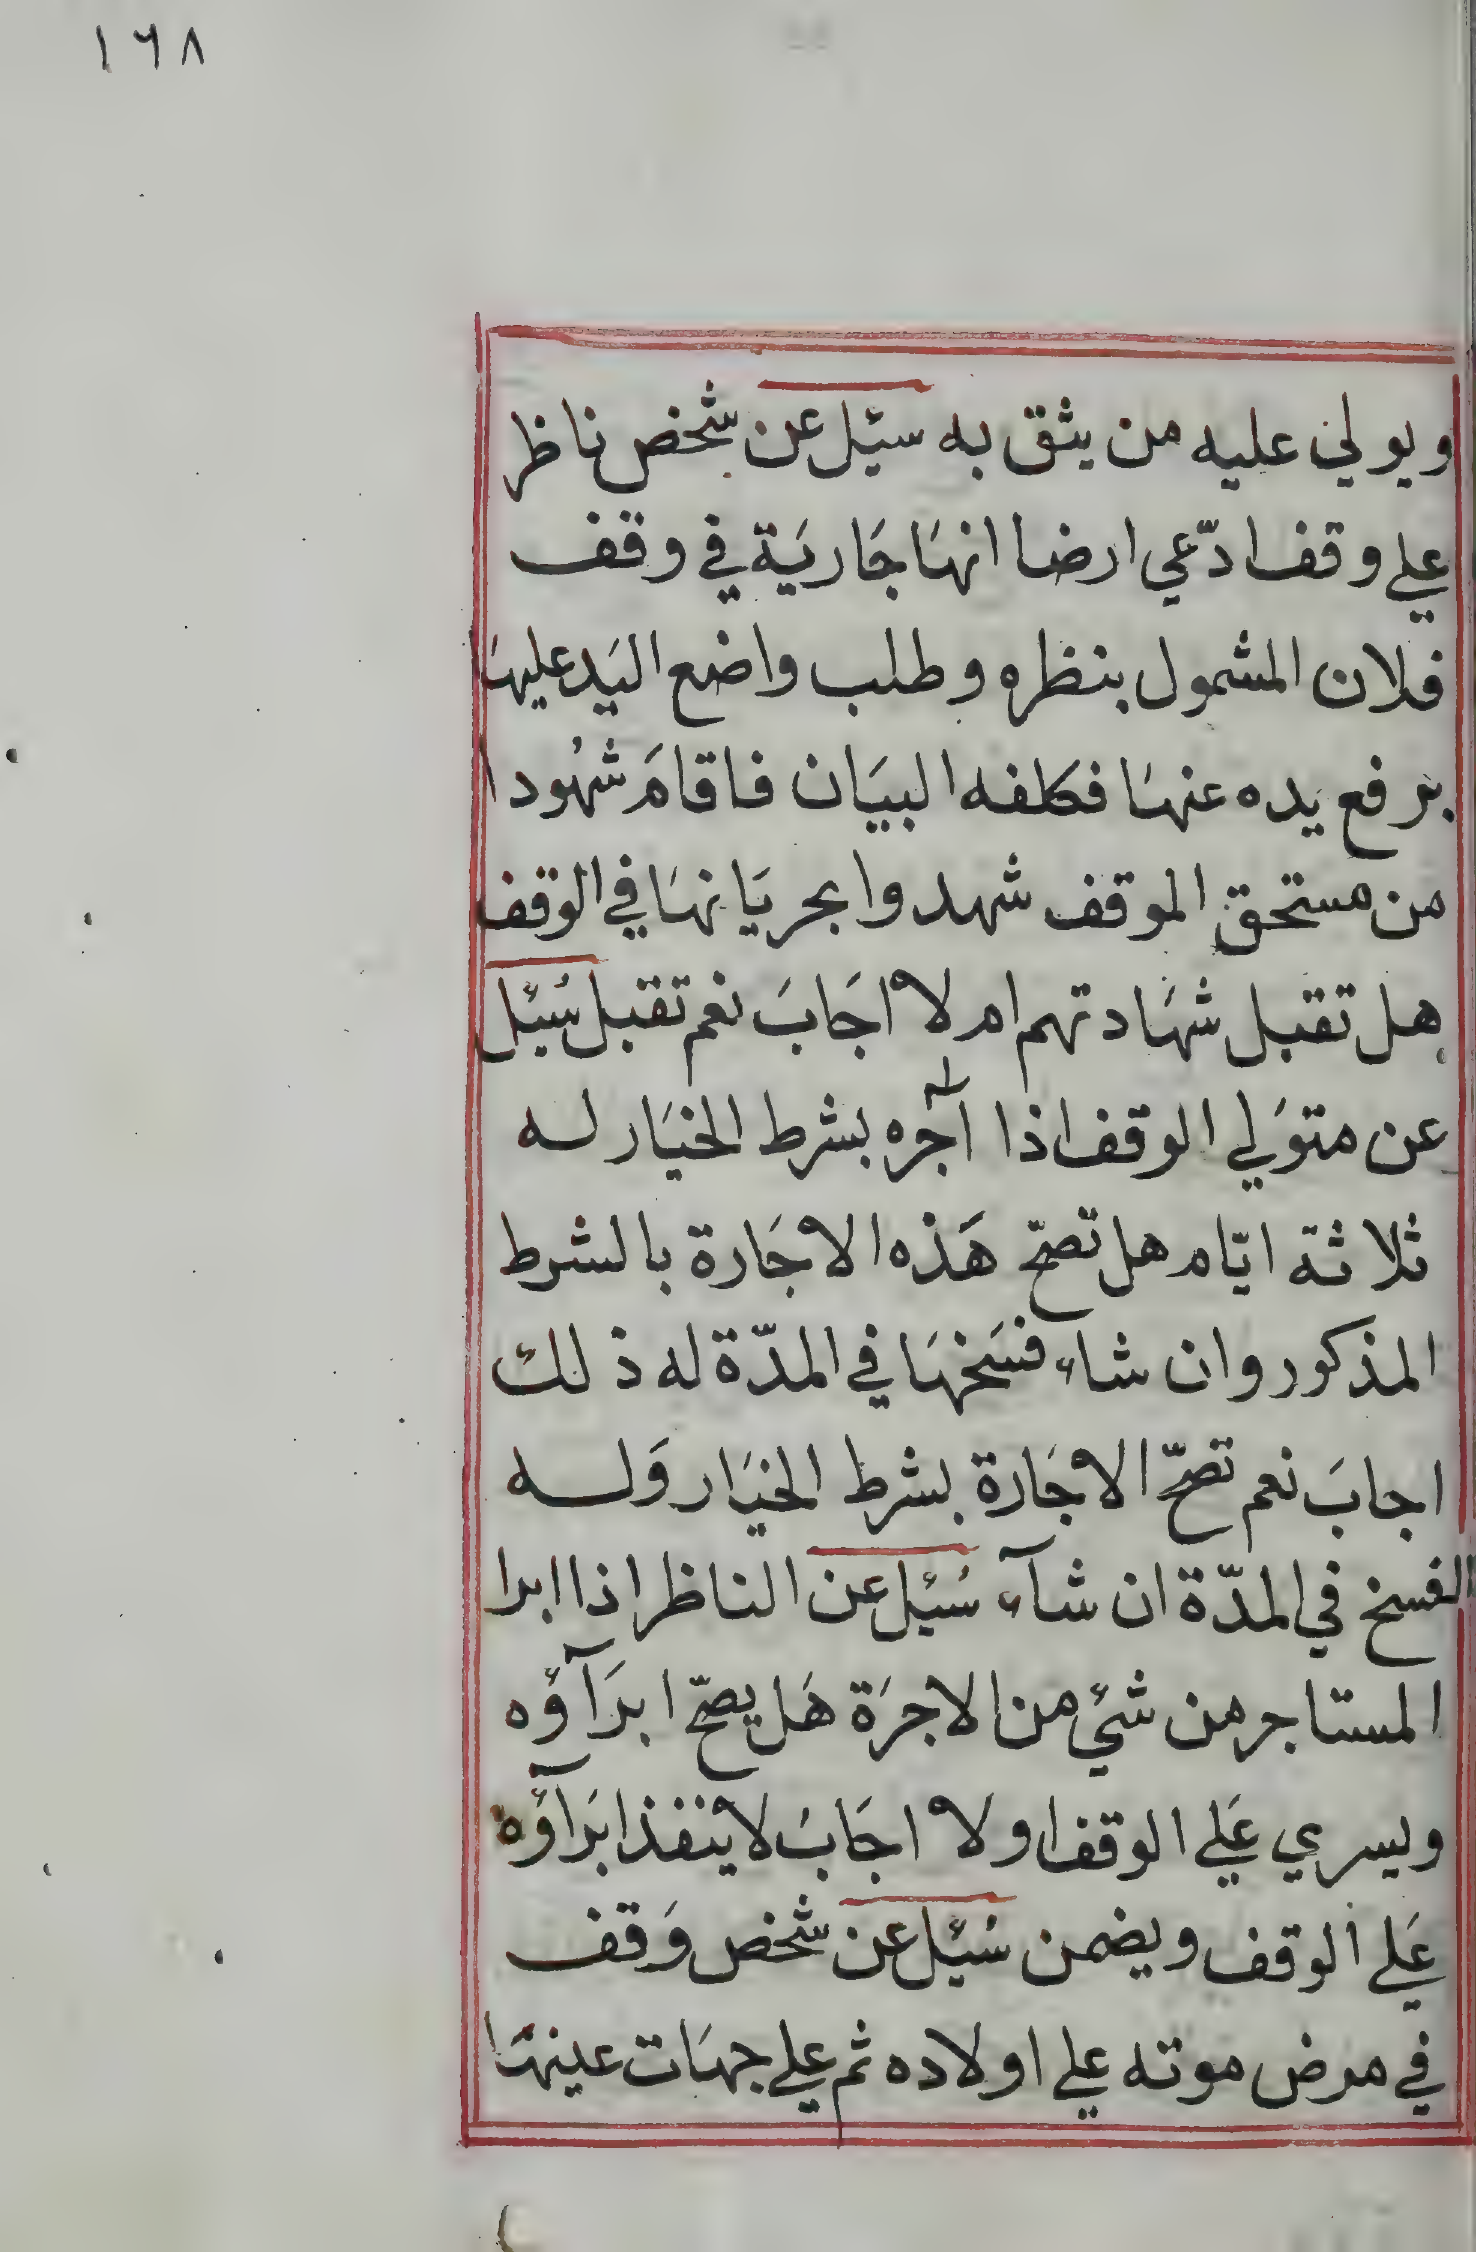 ١٦٨
ويولي عليه من يثق به سئيل عن شخص ناظر
علي وقف ادّعي ارضا انهَا جَاريَة في وقف
فلان المشمول بنظره وطلب واضع اليَد عليهَا
برفع يده عنهَا فكلفه البيَان فاقامَ شهُودا
من مستحق الموقف شهدوا بجريَانهَا في الوقف
هل تقبل شهَادتهم ام لا اجَابَ نعم تقبل سُئيل
عن متوَلي الوقف اذا آجره بشرط الخيَار له
ثلاثة ايّام هل تصحّ هَذه الاجَارة بالشرط
المذكور وان شاء فسَخهَا في المدّة له ذلك
اجابَ نعم تصحّ الاجَارة بشرط الخيَار وَله
الفسخ في المدّة ان شآء سُئيل عن الناظر اذا ابرا
المستاجر من شئي من الاجرَة هَل يصحّ ابرَآؤه
ويسري عَلي الوقف اولا اجَابَ لا ينفذ ابرَآؤه
عَلي الوقف ويضمن سُئيل عن شخص وَقف
في مرض موته علي اولاده ثم علي جهَات عينهَا